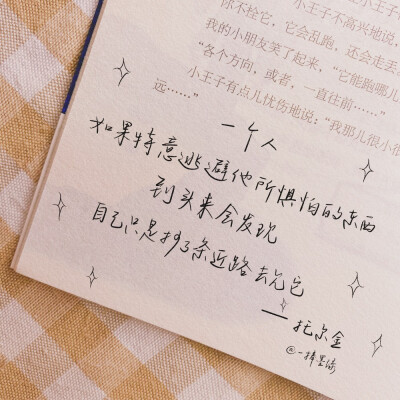 小王子不高兴地说，
你不拴它，它会乱跑，还会走丢
我的小朋友笑了起来，“它能跑哪儿
“各个方向，或者，一直往前……”
小王子有点儿忧伤地说：“我那儿很小很
远……”
一个人
如果特意逃避他所惧怕的东西
到头来会发现
自己只是抄了条近路去见它
——托尔金